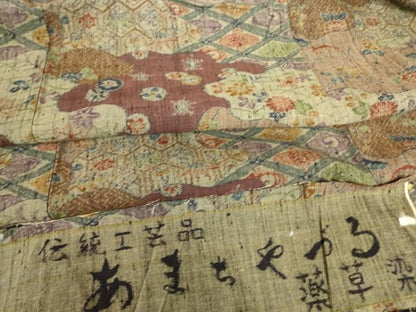 伝統工芸品
あまちやづる
薬草染